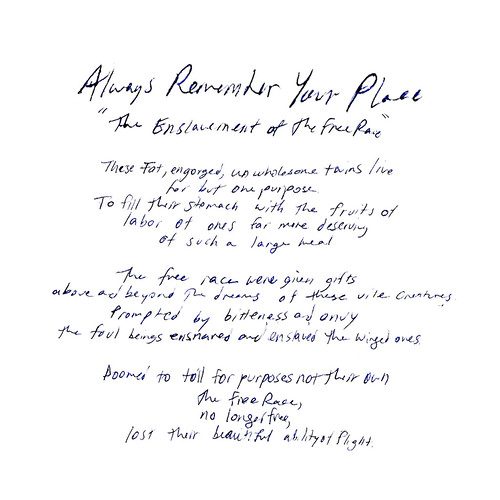 Always Remember Your Place
"The Enslavement of the Free Race"
These Fat, engorged, unwholesome twins live
for but one purpose
To fill their stomach with the fruits of
labor of ones far more deserving
of such a large meal
The free race were given gifts
above and beyond the dreams of these vile creatures
Prompted by bitterness and envy
the foul beings ensnared and enslaved the winged ones
Doomed to toil for purposes not their own
the free Race,
no longer free,
lost their beautiful ability of flight.